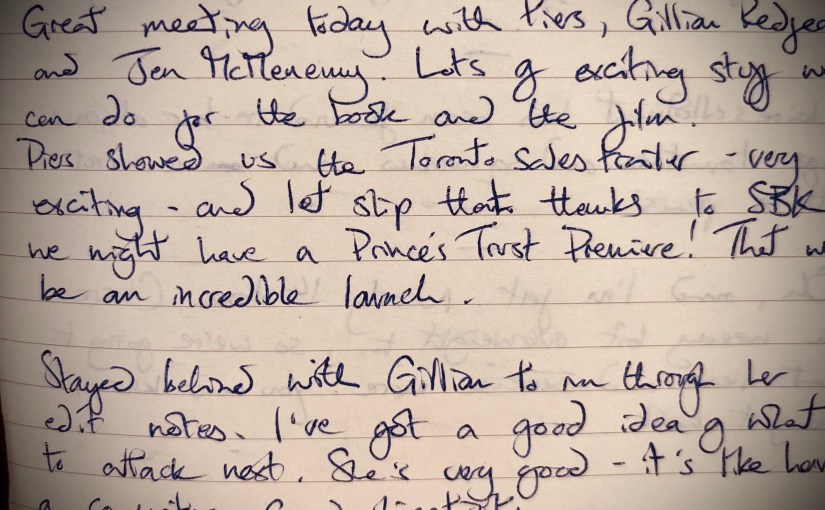 Great meeting today with Piers, Gillian Redfea
and Jen McMenemy. Lots of exciting stuff w
can do for the book and the film.
Piers showed us the Toronto sales trailer - very
exciting - and let slip that thanks to SBK
we might have a Prince's Trust Premiere! That w
be an incredible launch.
Stayed behind with Gillian to run through her
edit notes. I've got a good idea of what
to attack next. She's very good - it's like hav
a